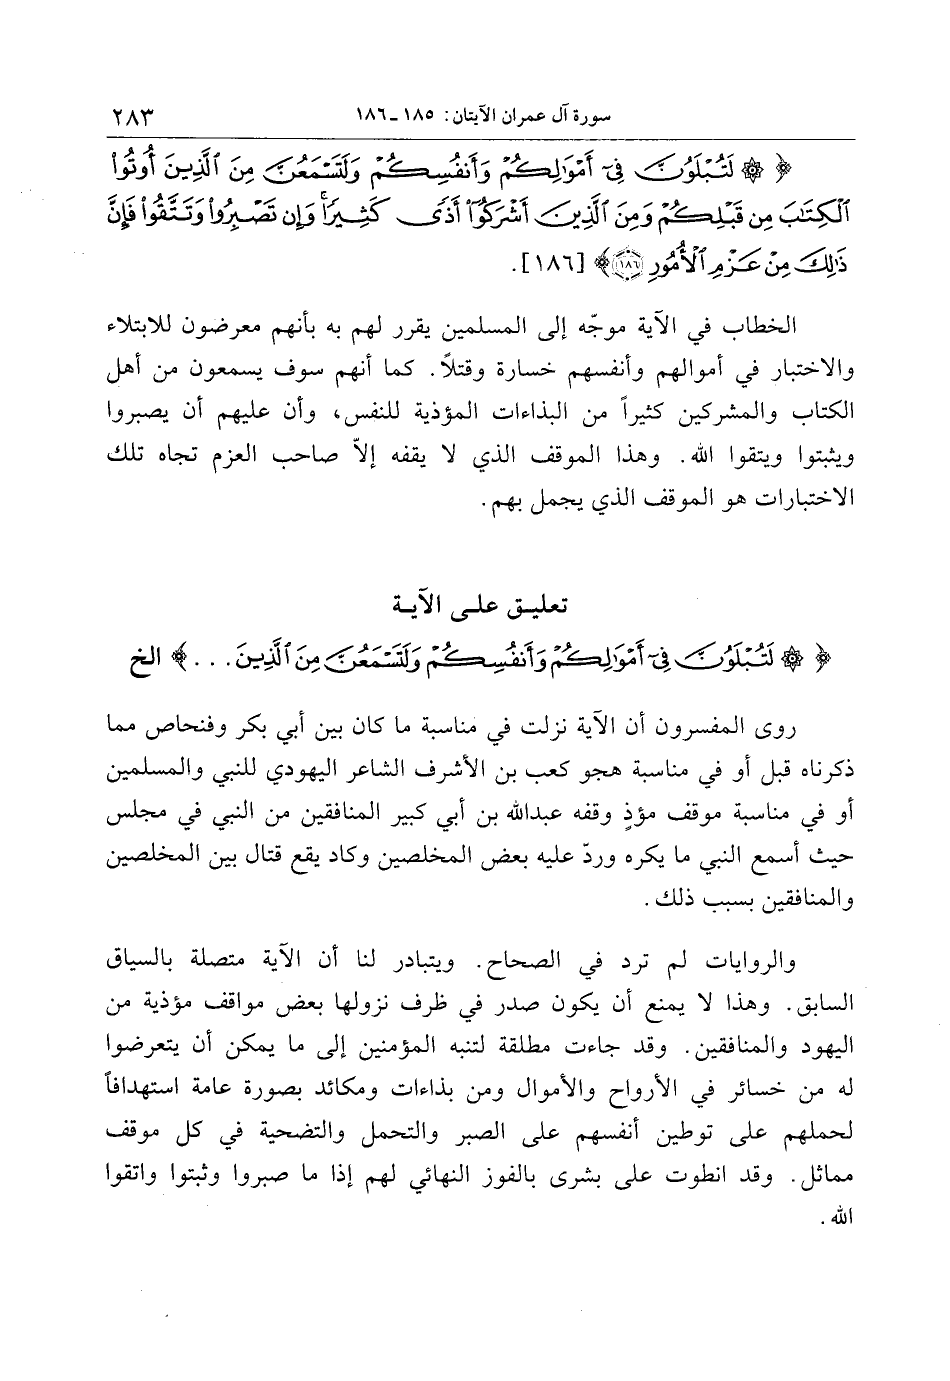 سورة آل عمران الآيتان: ١٨٥ـ١٨٦
٢٨٣
﴿ ۞ لَتُبْلَوُنَّ فِىٓ أَمْوَٰلِكُمْ وَأَنفُسِكُمْ وَلَتَسْمَعُنَّ مِنَ ٱلَّذِينَ أُوتُوا۟
ٱلْكِتَٰبَ مِن قَبْلِكُمْ وَمِنَ ٱلَّذِينَ أَشْرَكُوٓا۟ أَذًى كَثِيرًا ۚ وَإِن تَصْبِرُوا۟ وَتَتَّقُوا۟ فَإِنَّ
ذَٰلِكَ مِنْ عَزْمِ ٱلْأُمُورِ ١٨٦﴾ [١٨٦].
الخطاب في الآية موجّه إلى المسلمين يقرر لهم به بأنهم معرضون للابتلاء
والاختبار في أموالهم وأنفسهم خسارة وقتلاً. كما أنهم سوف يسمعون من أهل
الكتاب والمشركين كثيراً من البذاءات المؤذية للنفس، وأن عليهم أن يصبروا
ويثبتوا ويتقوا الله. وهذا الموقف الذي لا يقفه إلاّ صاحب العزم تجاه تلك
الاختبارات هو الموقف الذي يجمل بهم.
تعليق على الآية
﴿ ۞ لَتُبْلَوُنَّ فِىٓ أَمْوَٰلِكُمْ وَأَنفُسِكُمْ وَلَتَسْمَعُنَّ مِنَ ٱلَّذِينَ...﴾ الخ
روى المفسرون أن الآية نزلت في مناسبة ما كان بين أبي بكر وفنحاص مما
ذكرناه قبل أو في مناسبة هجو كعب بن الأشرف الشاعر اليهودي للنبي والمسلمين
أو في مناسبة موقف مؤذٍ وقفه عبدالله بن أبي كبير المنافقين من النبي في مجلس
حيث أسمع النبي ما يكره وردّ عليه بعض المخلصين وكاد يقع قتال بين المخلصين
والمنافقين بسبب ذلك.
والروايات لم ترد في الصحاح. ويتبادر لنا أن الآية متصلة بالسياق
السابق. وهذا لا يمنع أن يكون صدر في ظرف نزولها بعض مواقف مؤذية من
اليهود والمنافقين. وقد جاءت مطلقة لتنبه المؤمنين إلى ما يمكن أن يتعرضوا
له من خسائر في الأرواح والأموال ومن بذاءات ومكائد بصورة عامة استهدافاً
لحملهم على توطين أنفسهم على الصبر والتحمل والتضحية في كل موقف
مماثل. وقد انطوت على بشرى بالفوز النهائي لهم إذا ما صبروا وثبتوا واتقوا
الله.